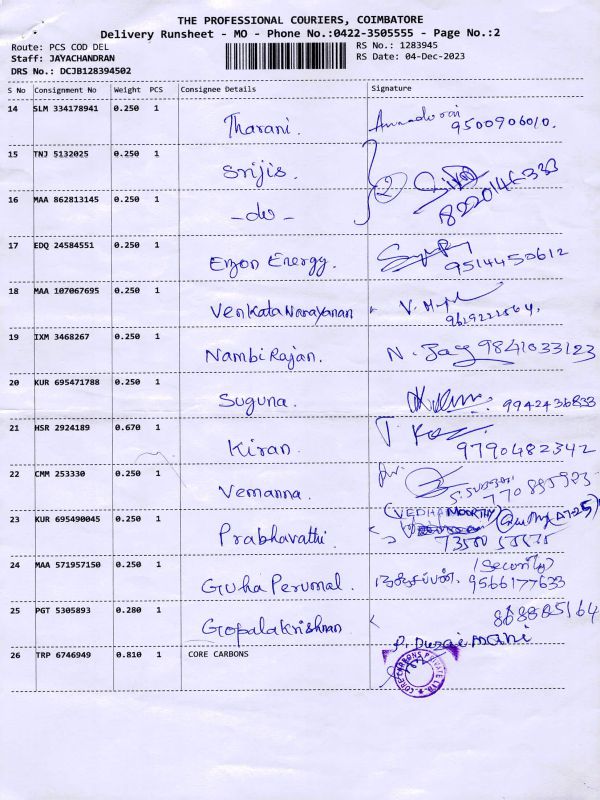 THE PROFESSIONAL COURIERS, COIMBATORE
Delivery Runsheet - MO - Phone No.:0422-3505555 - Page No.:2
Route: PCS COD DEL
RS No.: 1283945
Staff: JAYACHANDRAN
RS Date: 04-Dec-2023
DRS No.: DCJB128394502
S No Consignment No Weight PCS Consignee Details Signature
14 SLM 334178941 0.250 1 Tharani. 9500906010.
15 TNJ 5132025 0.250 1 Srijis.
2 8220146333
16 MAA 862813145 0.250 1 -do-
17 EDQ 24584551 0.250 1 Enzon Energy. 9514450612
18 MAA 107067695 0.250 1 Venkata Narayanan
19 IXM 3468267 0.250 1 Nambi Rajan. N. Jay 9841033123
20 KUR 695471788 0.250 1 Suguna. 9942436838
21 HSR 2924189 0.670 1 Kiran. 9790482342
22 CMM 253330 0.250 1 Vemanna.
23 KUR 695490045 0.250 1 Prabhavathi (VEDHAMOORTHY)
24 MAA 571957150 0.250 1 Guha Perumal. (Security) 9566177633
25 PGT 5305893 0.280 1 Gopalakrishnan
P. Duraimani
26 TRP 6746949 0.810 1 CORE CARBONS
CORE CARBONS PRIVATE LTD.